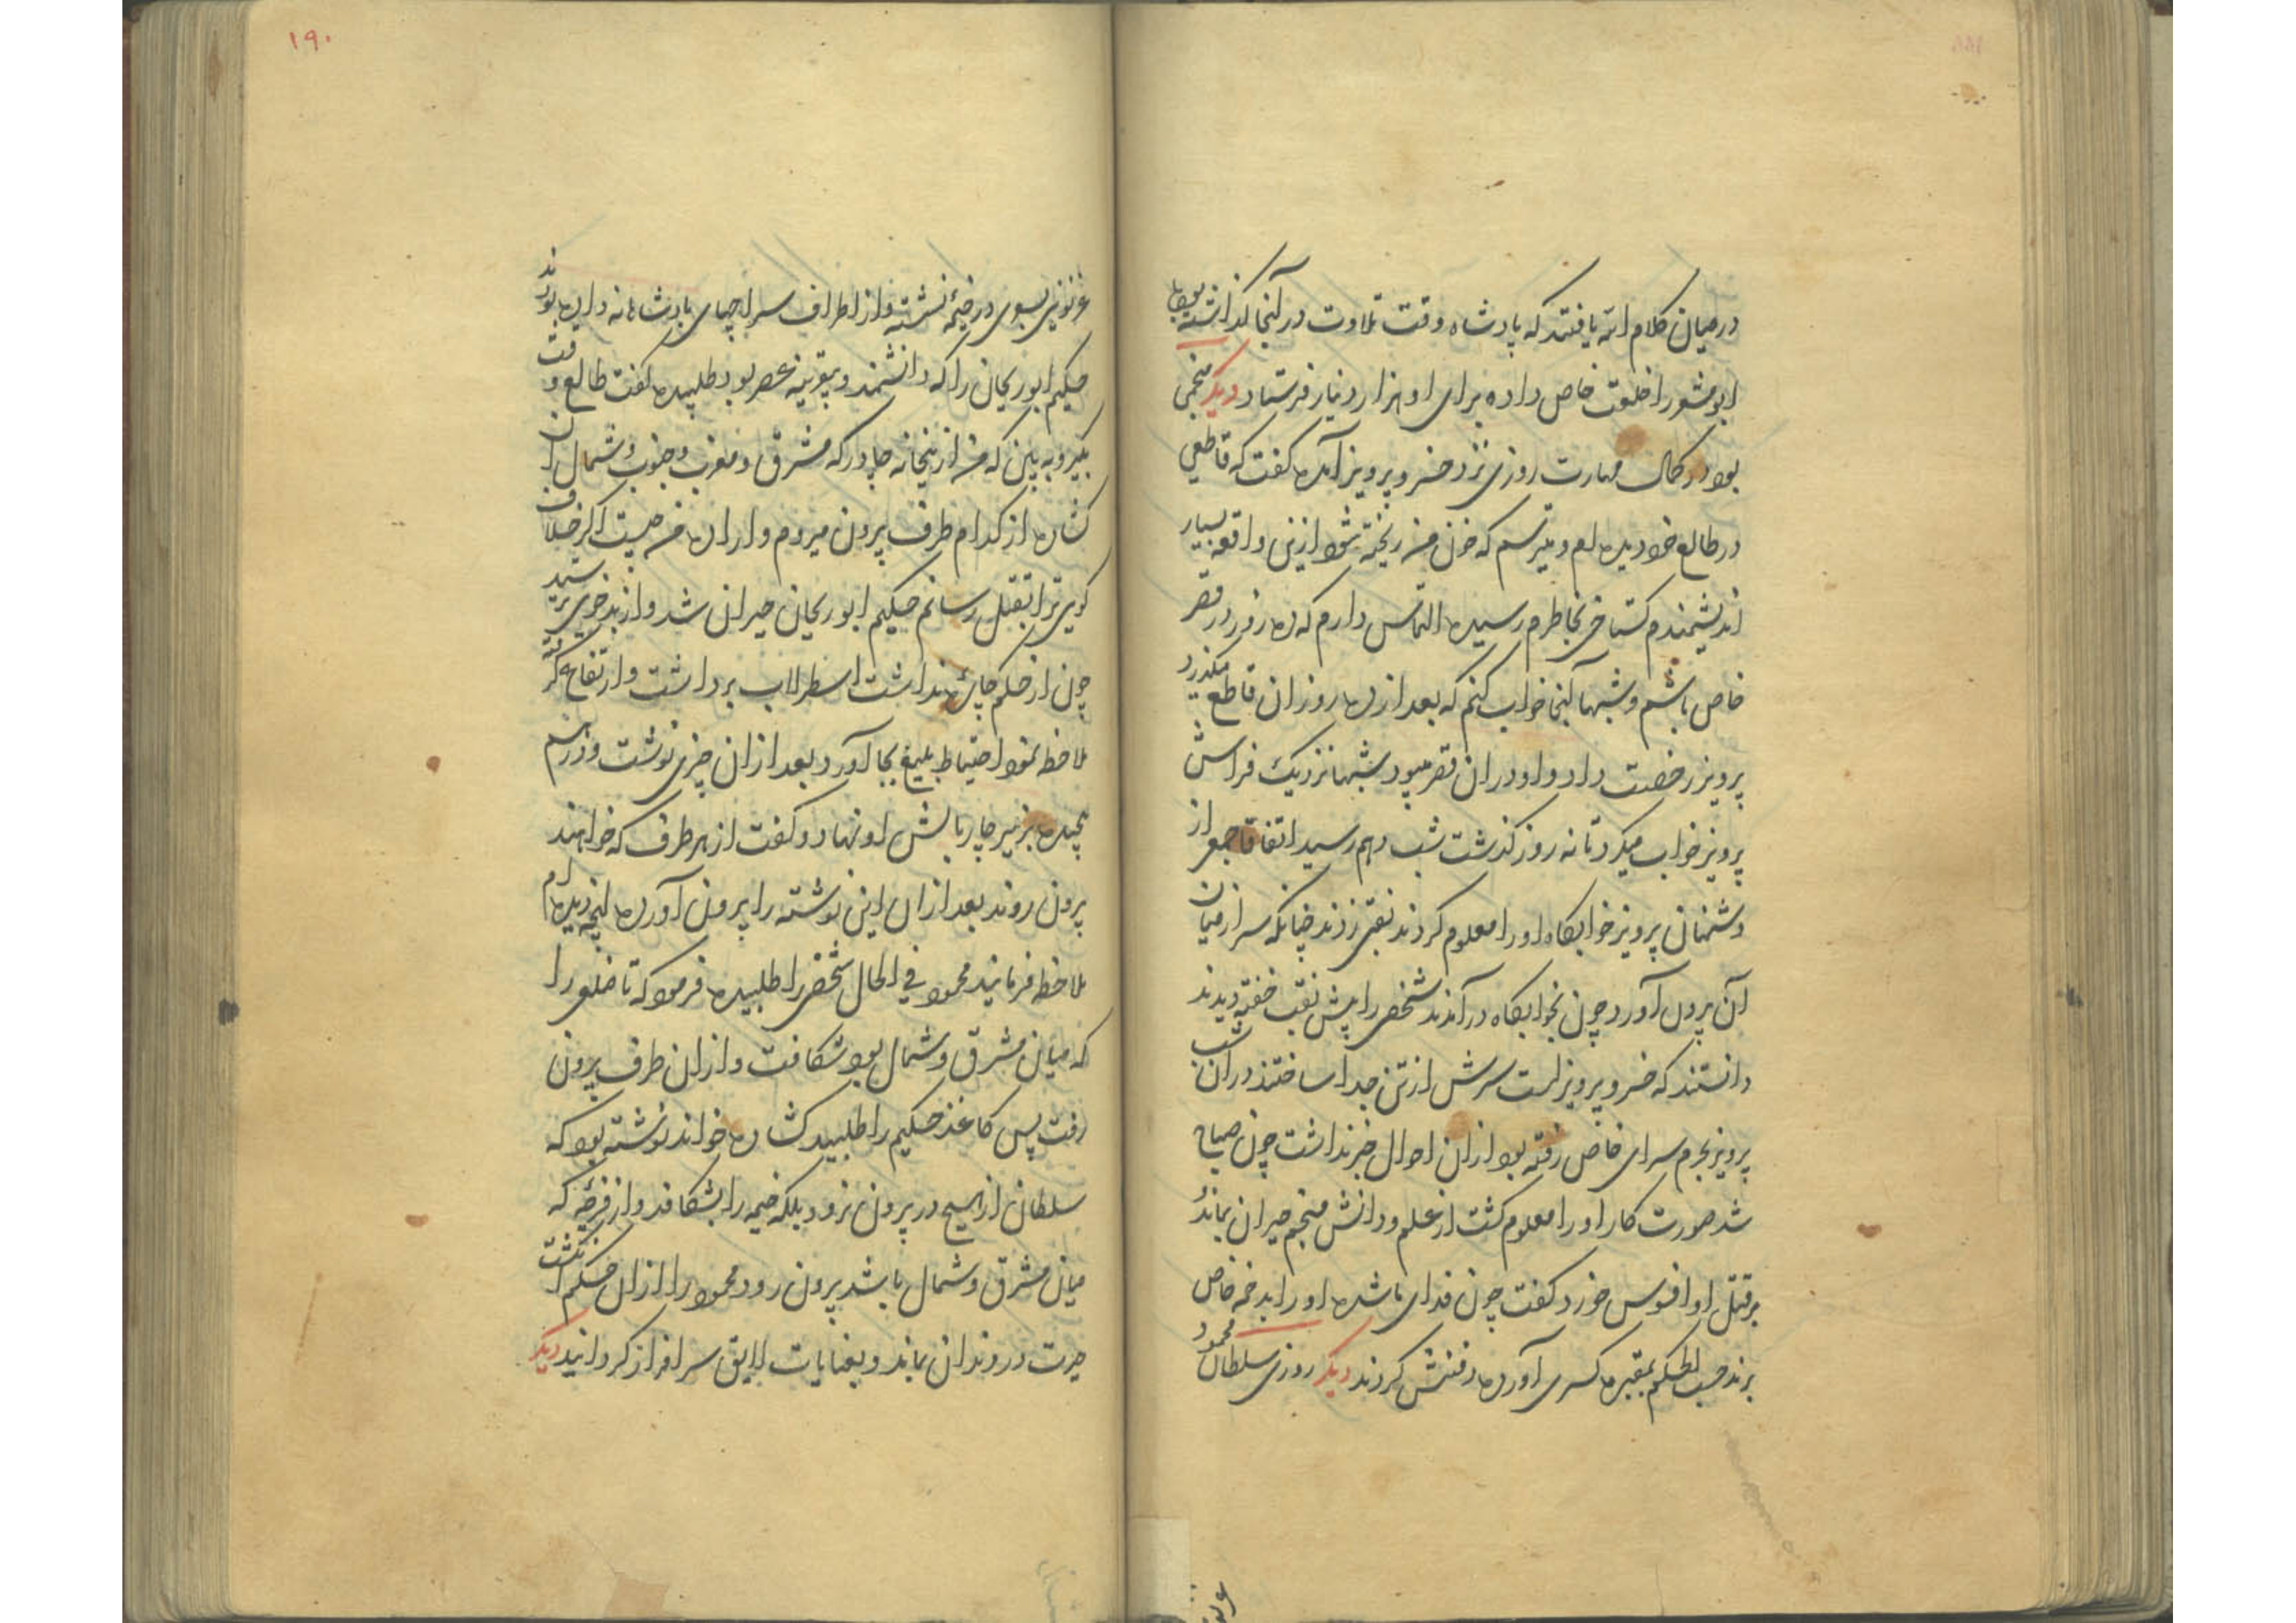 در میان کلام الله یافتند که پادشاه وقت تلاوت در آنجا گذاشته بود
ابومعشر را خلعت خاص داده برای او هزار دینار فرستاد دیگر منجمی
بود در کمال مهارت روزی نزد خسرو پرویز آمده گفت که قاطعی
در طالع خود دیده ام و میترسم که خون من ریخته شود ازین واقعه بسیار
اندیشمندم گستاخی بخاطرم رسیده التماس دارم که ده روز در قصر
خاص باشم و شبها آنجا خواب کنم که بعد از ده روز آن قاطع میگذرد
پرویز رخصت داد و او در آن قصر میبود شبها نزدیک فراش
پرویز خواب میکرد تا نه روز گذشت شب دهم رسید اتفاقا جمعی از
دشمنان پرویز خوابگاه او را معلوم کردند نقبی زدند چنانکه سر از میان
آن برون آورد چون بخوابگاه درآمدند شخصی را پیش نقب خفته دیدند
دانستند که خسرو پرویز است سرش از تن جدا ساختند در آن شب
پرویز بحرم سرای خاص رفته بود از آن احوال خبر نداشت چون صباح
شد صورت کار او را معلوم گشت از علم و دانش منجم حیران بماند و
بر قتل او افسوس خورد گفت چون فدای ما شده او را بدخمه خاص
برند حسب الحکم بمقبره کسری آورده دفنش کردند دیگر روزی سلطان محمود
۱۹۰
غزنوی بسوی در خیمه نشسته و از اطراف سراچهای پادشاهانه زده بودند
حکیم ابوریحان را که دانشمند و بیقرینه عصر بود طلبیده گفت طالع وقت
بگیر و به بین که من ازینخانه چادر که مشرق و مغرب و جنوب و شمال آن
گشاده از کدام طرف برون میروم و اراده من چیست اگر خلاف
گویی ترا بقتل رسانم حکیم ابوریحان حیران شد و از بدخوی ترسید
چون از حکم چاره نداشت اسطرلاب برداشت و ارتفاع گرفته
ملاحظه نمود احتیاط بلیغ بجا آورد بعد از آن چیزی نوشت و در هم
پیچیده بزیر چار بالش او نهاد و گفت از هر طرف که خواهند
برون روند بعد از آن این نوشته را برون آورده آنچه دیده ام
ملاحظه فرمایند محمود فی الحال شخصی را طلبیده فرمود که تا ضلعی را
که میان مشرق و شمال بود شکافت و از آن طرف برون
رفت پس کاغذ حکیم را طلبید گشاده خواند نوشته بود که
سلطان از هیچ در برون نرود بلکه خیمه را بشکافد و از فرجه که
میان مشرق و شمال باشد برون رود محمود را از آن حکم انگشت
حیرت در دندان بماند و بعنایات لایق سرافراز گردانید دیگر